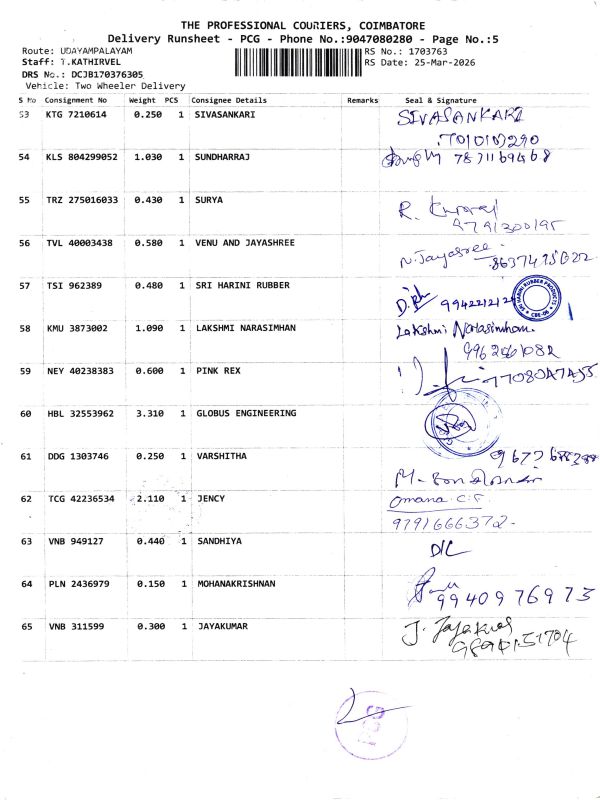 THE PROFESSIONAL COURIERS, COIMBATORE
Delivery Runsheet - PCG - Phone No.:9047080280 - Page No.:5
Route: UDAYAMPALAYAM RS No.: 1703763
Staff: T.KATHIRVEL RS Date: 25-Mar-2026
DRS No.: DCJB170376305
Vehicle: Two Wheeler Delivery
S No Consignment No Weight PCS Consignee Details Remarks Seal & Signature
53 KTG 7210614 0.250 1 SIVASANKARI SIVASANKARI
54 KLS 804299052 1.030 1 SUNDHARRAJ
55 TRZ 275016033 0.430 1 SURYA R.
9791300195
56 TVL 40003438 0.580 1 VENU AND JAYASHREE N. Jayasree
57 TSI 962389 0.480 1 SRI HARINI RUBBER
SRI HARINI RUBBER PRODUCTS
58 KMU 3873002 1.090 1 LAKSHMI NARASIMHAN Lakshmi Narasimhan
59 NEY 40238383 0.600 1 PINK REX
60 HBL 32553962 3.310 1 GLOBUS ENGINEERING
61 DDG 1303746 0.250 1 VARSHITHA
62 TCG 42236534 2.110 1 JENCY Omana C.S.
9791666372
63 VNB 949127 0.440 1 SANDHIYA D/C
64 PLN 2436979 0.150 1 MOHANAKRISHNAN
9940976973
65 VNB 311599 0.300 1 JAYAKUMAR J. Jayakumar
PCG